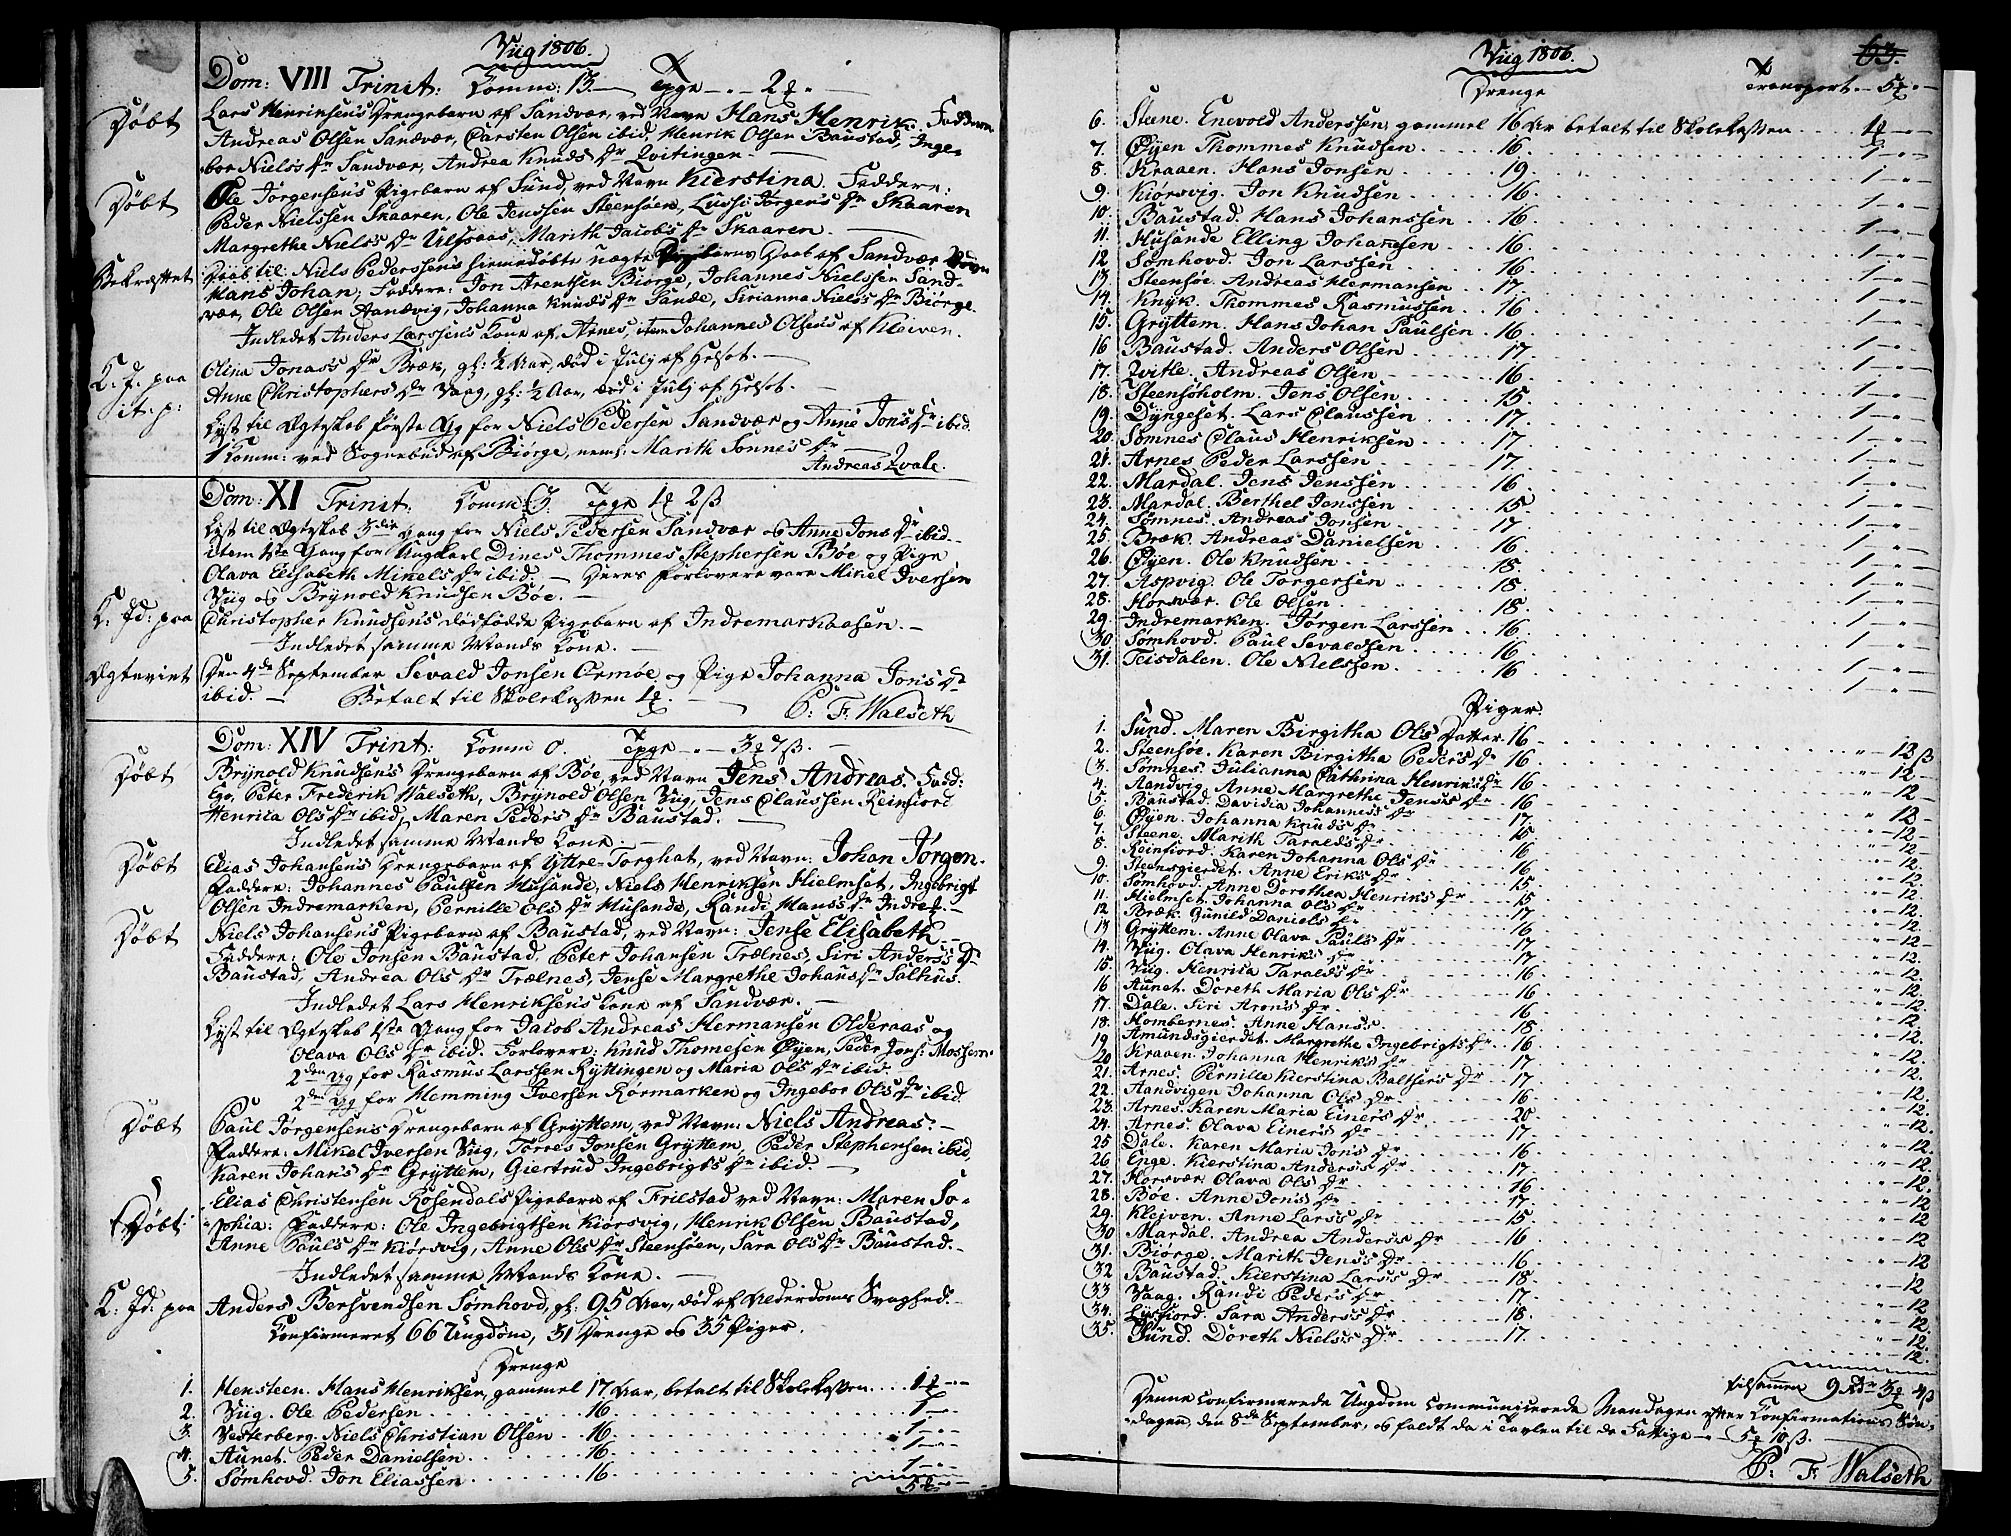 Viig 1806.
Dom: VIII Trinit: Komm: 13. — Expr — . — 2
Døbt Lars Henriksens Drengebarn af Sandvær, ved Navn Hans Henrik. Faddere
Andreas Olsen Sandvær, Carsten Olsen ibid, Henrik Olsen Baustad, Inge-
bor Niels's Dr Sandvær, Andrea Knuds Dr Qvitingen. —
Døbt Ole Jørgensen's Pigebarn af Sund, ved Navn Kierstina. Faddere:
Peder Nielssen Skaaren, Ole Jenssen Steensøen, Lussi Jørgens Dr Skaaren
Margrethe Niels's Dr Ulfsaas, Marith Jacob's Dr Skaaren. —
Bekræftet Daab til Niels Pederssen's hiemmedøbte uægte barns Daab af Sandvær Navn
Hans Johan, Faddere: Jon Arentsen Biørge, Johannes Nielssen Sand-
vær, Ole Olsen Aandvig, Johanna Knuds's Dr Sande, Sirianna Niels's Dr Biørge.
Indledet Anders Larssens Kone af Arnes, item Johannes Olsens af Kleiven.
K. J. paa Olina Jonas's Dr Bræk, gl: ½ Aar, død i Julj af Hosot. —
it. p: Anne Christophers Dr Vaag, gl: ½ Aar, død i Julj af Hosot. —
Lyst til Ægteskab første Gg for Niels Pedersen Sandvær og Anne Jons Dr ibid.
1 Komm: ved Sognebud af Biørge, neml: Marith Sonnes Dr
Andreas Qvale.
Dom: XI Trinit: Komm: 3. Expr 1 2 ß
Lyst til Ægteskab 3die Gang for Niels Pedersen Sandvær og Anne Jons Dr ibid —
item 1ste Gang for Ungkarl Dines Thommes Stephersen Bøe og Pige
Olava Elisabeth Mikels Dr ibid. — Deres Forlovere vare Mikel Iversen
Viig og Brynold Knudsen Bøe. —
K. Jd: paa Christopher Knudsen's dødfødde Pigebarn af Indremarkaasen. —
Indledet samme Mands Kone. —
Ægteviet Den 4de September Sevald Jonsen Ormøe og Pige Johanna Jons Dr
ibid. — Betalt til Skolekassen 1 — P: F: Walseth
Dom: XIV Trint: Komm 0. Expr — 3 7 ß. —
Døbt Brynold Knudsen's Drengebarn af Bøe, ved Navn Jens Andreas. Fadd:
Ego, Peter Frederik Walseth, Brynold Olsen Viig, Jens Claussen Reinfiord
Henrica Ols Dr ibid, Maren Peders Dr Baustad. —
Indledet samme Mands Kone —
Døbt Elias Johansen's Drengebarn af Yttre-Torghat, ved Navn: Johan Jørgen.
Faddere: Johannes Paulsen Husande, Niels Henriksen Hielmset, Ingebrigt
Olsen Indremarken, Pernille Ols Dr Husande, Randi Hans's Dr Indret. —
Døbt Niels Johansen's Pigebarn af Baustad, ved Navn: Jense Elisabeth —
Faddere: Ole Jonsen Baustad, Peter Johansen Trælnes, Siri Anders's Dr
Baustad, Andrea Ols Dr Trælnes, Jense Margrethe Johans Dr Salhus.
Indledet Lars Henriksen's Kone af Sandvær. —
Lyst til Ægteskab 1ste Gang for Jacob Andreas Hermansen Olderaas og
Olava Ols Dr ibid. Forlovere: Knud Thomesen Øyen, Peder Jons: Moshem
2den Gg for Rasmus Larssen Ryttingen og Maria Ols Dr ibid.
2den Gg for Hemming Iversen Rørmarken og Ingebor Ols Dr ibid
Døbt Paul Jørgensen's Drengebarn af Gryttem, ved Navn: Niels Andreas: —
Faddere: Mikel Iversen Viig, Torres Jonsen Gryttem, Peder Stephensen ibid,
Karen Johans Dr Gryttem, Giertrud Ingebrigts Dr ibid. —
Døbt Elias Christensen Rosendals Pigebarn af Trilstad ved Navn: Maren So-
phia: Faddere: Ole Ingebrigtsen Kiørsvig, Henrik Olsen Baustad,
Anne Pauls Dr Kiørsvig, Anne Ols Dr Steensøen, Sara Ols Dr Baustad. —
Indledet samme Mands Kone. —
K: Jd: paa Anders Bersvendsen Sømhovd, gl: 95 Aar, død af Alderdoms Svaghed. —
Konfirmeret 66 Ungdom, 31 Drenge og 35 Piger.
Drenge
1. Hensteen. Hans Henriksen, gammel 17 Aar, betalt til Skolekassen . . . 1 — . —
2. Viig. Ole Pedersen . . . 16. . . . 1 — . —
3. Vesterberg. Niels Christian Olsen . . 16. . . . 1 — . —
4. Aunet. Peder Danielsen . . . 16. . . . 1 — . —
5. Sømhovd. Jon Eliassen . . . 16 . . . 1 — . —
5 — . —
Viig 1806. 63.
Drenge Transport — 5 . —
6. Steene. Enevold Anderssen, gammel 16 Aar betalt til Skolekassen . . . 1 — . —
7. Øyen Thommes Knudsen . . . 16 . . . 1 — . —
8. Kraaen. Hans Jonsen . . . 19 . . . 1 — . —
9. Kiørsvig. Jon Knudsen . . . 16 . . . 1 — . —
10. Baustad. Hans Johanssen . . . 16 . . . 1 — . —
11. Husande Elling Johansen . . . 16 . . . 1 — . —
12. Sømhovd. Jon Larssen . . . 16 . . . 1 — . —
13. Steensøe. Andreas Hermansen . . 17 . . . 1 — . —
14. Knyk. Thommes Rasmussen . . 16 . . . 1 — . —
15. Gryttem. Hans Johan Paulsen . 16 . . . 1 — . —
16 Baustad. Anders Olsen . . . 17 . . . 1 — . —
17. Qvitle. Andreas Olsen . . . 16 . . . 1 — . —
18. Steensøholm. Jens Olsen . . . 15 . . . 1 — . —
19. Dyngeset. Lars Claussen . . . 17 . . . 1 — . —
20. Sømnes Claus Henriksen . . . 17 . . . 1 — . —
21. Arnes Peder Larssen . . . 17 . . . 1 — . —
22. Mardal. Jens Jenssen . . . 16 . . . 1 — . —
23. Mardal. Berthel Jenssen . . . 15 . . . 1 — . —
24. Sømnes. Andreas Jonsen . . . 17 . . . 1 — . —
25. Bræk. Andreas Danielsen . . . 16 . . . 1 — . —
26. Øyen. Ole Knudsen . . . 18 . . . 1 — . —
27. Aspvig. Ole Torgersen . . . 18 . . . 1 — . —
28. Horsvær. Ole Olsen . . . 18 . . . 1 — . —
29. Indremarken. Jørgen Larssen . . 16 . . . 1 — . —
30. Sømhovd. Paul Sevaldsen . . . 16 . . . 1 — . —
31. Teisdalen. Ole Nielssen . . . 16 . . . 1 — . —
Piger.
1. Sund. Maren Birgitha Ols Datter . 16 . . . " — 12 ß
2. Steensøe. Karen Birgitha Peders Dr 16 . . . " — 12 —
3. Sømnes. Julianna Cathrina Henriks's Dr 16 . . . " — 12 —
4. Aandvig. Anne Margrethe Jens's Dr 16 . . . " — 12 —
5. Baustad. Davidia Johannes's Dr 17 . . . " — 12 —
6. Øyen. Johanna Knud's Dr . . . 15 . . . " — 12 —
7. Steene. Marith Tarald's Dr . . . 16 . . . " — 12.
8. Reinfiord. Karen Johanna Ols Dr . . . 16 . . . " — 12.
9. Steensgierdet. Anne Eriks Dr . . . 15 . . . " — 12.
10. Sømhovd. Anne Dorothea Henriks Dr . . . 15 . . . " — 12.
11. Hielmset. Johanna Ols Dr . . . 17 . . . " — 12.
12 Bræk. Gunild Daniels Dr . . . 16 . . . " — 12.
13 Gryttem. Anne Olava Pauls Dr . . . 17 . . . " — 12.
14. Viig. Olava Henriks Dr . . . 17 . . . " — 12.
15. Viig. Henrica Taralds Dr . . . 16 . . . " — 12.
16 Aunet. Doreth Maria Ols Dr . . . 16 . . . " — 12.
17. Dale. Siri Arons Dr . . . 16 . . . " — 12.
18. Hombernes. Anne Hans's . . . 18 . . . " — 12.
19 Amundsgierdet. Margrethe Ingebrigts Dr . . 16 . . . " — 12.
20 Kraaen. Johanna Henriks Dr . . . 17 . . . " — 12.
21. Arnes. Pernille Kierstina Baltsers Dr . . . 17 . . . " — 12.
22. Aandvigen Johanna Ols Dr . . . 16 . . . " — 12.
23. Arnes. Karen Maria Einers Dr . . . 20 . . . " — 12.
24. Arnes. Olava Einers Dr . . . 17 . . . " — 12.
25 Dale. Karen Maria Jons Dr . . . 16 . . . " — 12.
26 Enge. Kierstina Anders's Dr . . . 17 . . . " — 12.
27. Horsvær Olava Ols Dr . . . 16 . . . " — 12.
28. Bøe. Anne Jons Dr . . . 17 . . . " — 12.
29. Kleiven. Anne Lars's Dr . . . 15 . . . " — 12
30 Mardal. Andrea Anders's Dr . . . 16 . . . " — 12
31. Biørge. Marith Jens's Dr . . . 16 . . . " — 12
32 Baustad. Kierstina Lars's Dr . . . 18 . . . " — 12
33 Vaag. Randi Peders Dr . . . 17 . . . " — 12
34. Lysfiord. Sara Anders's Dr . . . 18 . . . " — 12.
35. Sund. Doreth Niels's Dr . . . 17 . . . " — 12.
tilsamen 9 Rdr 3 4 ß
Denne confirmerede Ungdom communicerede Mandagen efter Confirmations Søn-
dagen, den 8de September, og faldt da i Tavlen til de Fattige — . — 5 10 ß. —
P: F: Walseth